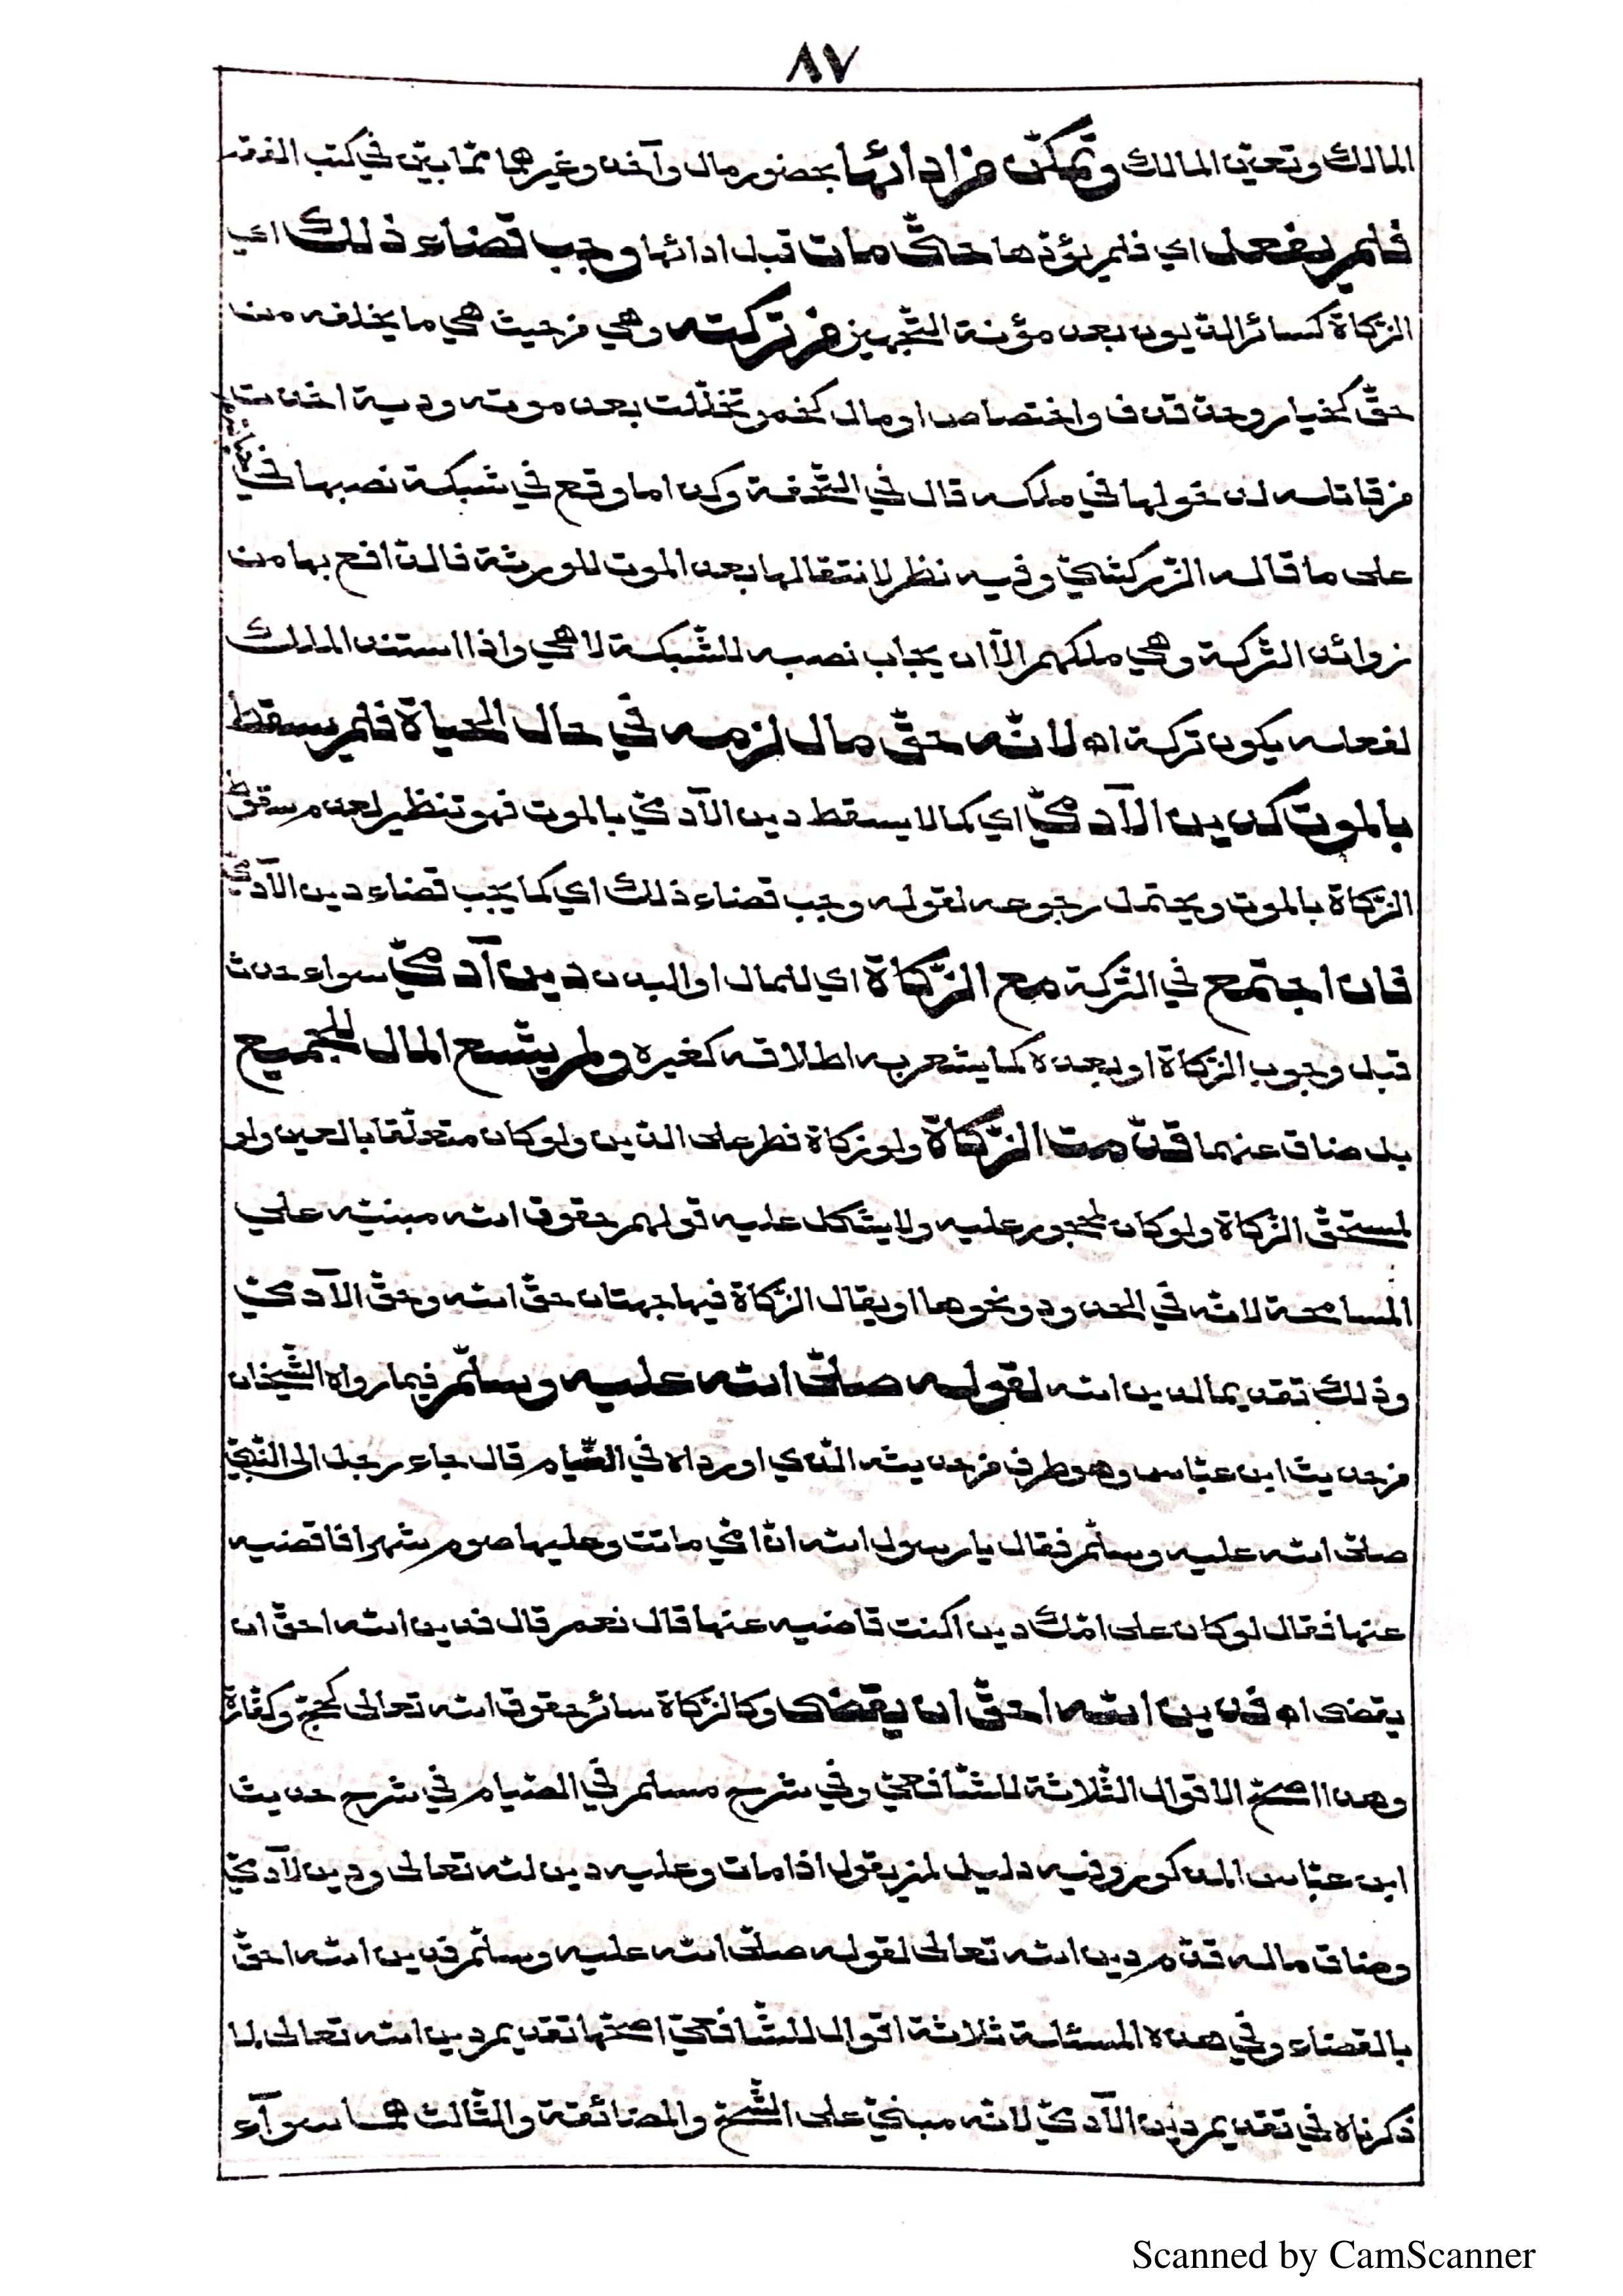 ٨٧
المالك وتعيّن المالك وتمكّن من ادائها بحضور مال وآخذ وغيرهما ممّا بيّن في كتب الفقه
فلم يفعل اي فلم يؤدّها حتّى مات قبل ادائها وجب قضاء ذلك اي
الزّكاة كسائر الدّيون بعد مؤنة التّجهيز من تركته وهي من حيث هي ما يخلفه من
حقّ كخيار وحدّ قذف واختصاص او مال كخمر تخلّلت بعد موته ودية اخذت
من قاتله لدخولها في ملكه قال في التّحفة وكذا ما وقع في شبكة نصبها في
على ما قاله الزّركشيّ وفيه نظر لانتقالها بعد الموت للورثة فالدّافع بها من
زوائد التّركة وهي ملكهم الّا ان يجاب نصبه للشّبكة لا هي واذا استند الملك
لفعله يكون تركة اه لانّه حقّ مال لزمه في حال الحياة فلم يسقط
بالموت كدين الآدميّ اي كما لا يسقط دين الآدميّ بالموت فهو تنظير لعدم سقوط
الزّكاة بالموت ويحتمل رجوعه لقوله وجب قضاء ذلك اي كما يجب قضاء دين الآدميّ
فان اجتمع في التّركة مع الزّكاة اي للمال او البدن دين آدميّ سواء حدث
قبل وجوب الزّكاة او بعده كما يشعر به اطلاقه كغيره ولم يتّسع المال للجميع
بل ضاق عنهما قدّمت الزّكاة ولو زكاة فطر على الدّين ولو كان متعلّقا بالعين ولو
لمستحقّ الزّكاة ولو كان لمحجور عليه ولا يشكل عليه قولهم حقوق الله مبنيّه على
المسامحة لانّه في الحدود ونحوها او يقال الزّكاة فيها جهتان حقّ الله وحقّ الآدميّ
وذلك تقديما لدين الله لقوله صلّى الله عليه وسلّم فيما رواه الشّيخان
من حديث ابن عبّاس وهو طرف من حديثه الّذي اورداه في الصّيام قال جاء رجل الى النّبيّ
صلّى الله عليه وسلّم فقال يا رسول الله انّ امّي ماتت وعليها صوم شهر افاقضيه
عنها فقال لو كان على امّك دين اكنت قاضيه عنها قال نعم قال فدين الله احقّ ان
يقضى اه فدين الله احقّ ان يقضى وكالزّكاة سائر حقوق الله تعالى كحجّ وكفّارة
وهذا اصحّ الاقوال الثّلاثة للشّافعيّ وفي شرح مسلم في الصّيام في شرح حديث
ابن عبّاس المذكور وفيه دليل لمن يقول اذا مات وعليه دين لله تعالى ودين لآدميّ
وضاق ماله قدّم دين الله تعالى لقوله صلّى الله عليه وسلّم فدين الله احقّ
بالقضاء وفي هذه المسئلة ثلاثة اقوال للشّافعيّ اصحّها تقديم دين الله تعالى لما
ذكرناه في تقديم دين الآدميّ لانّه مبنيّ على الشّحّ والمضائقة والثّالث هما سوآء
Scanned by CamScanner